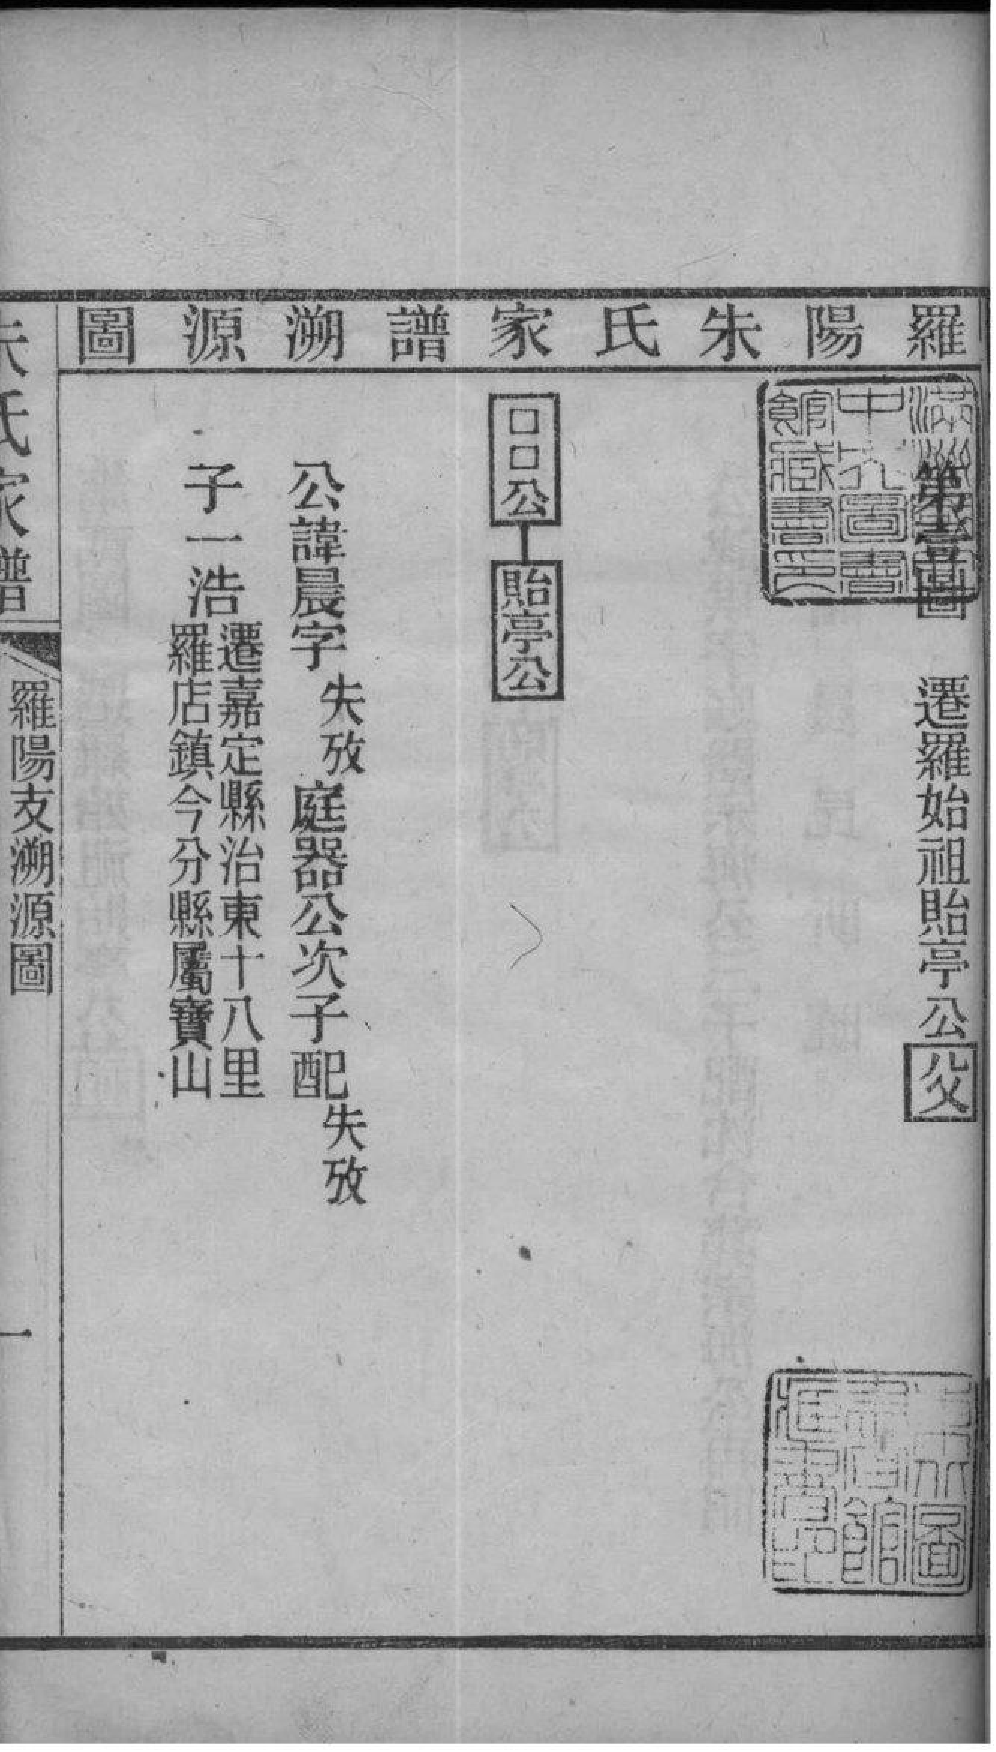 羅陽朱氏家譜溯源圖
第壹圖 遷羅始祖貽亭公父
口口公 貽亭公
公諱晨字失攷庭器公次子配失攷
子一浩遷嘉定縣治東十八里
羅店鎮今分縣屬寶山
朱氏家譜 羅陽支溯源圖 一